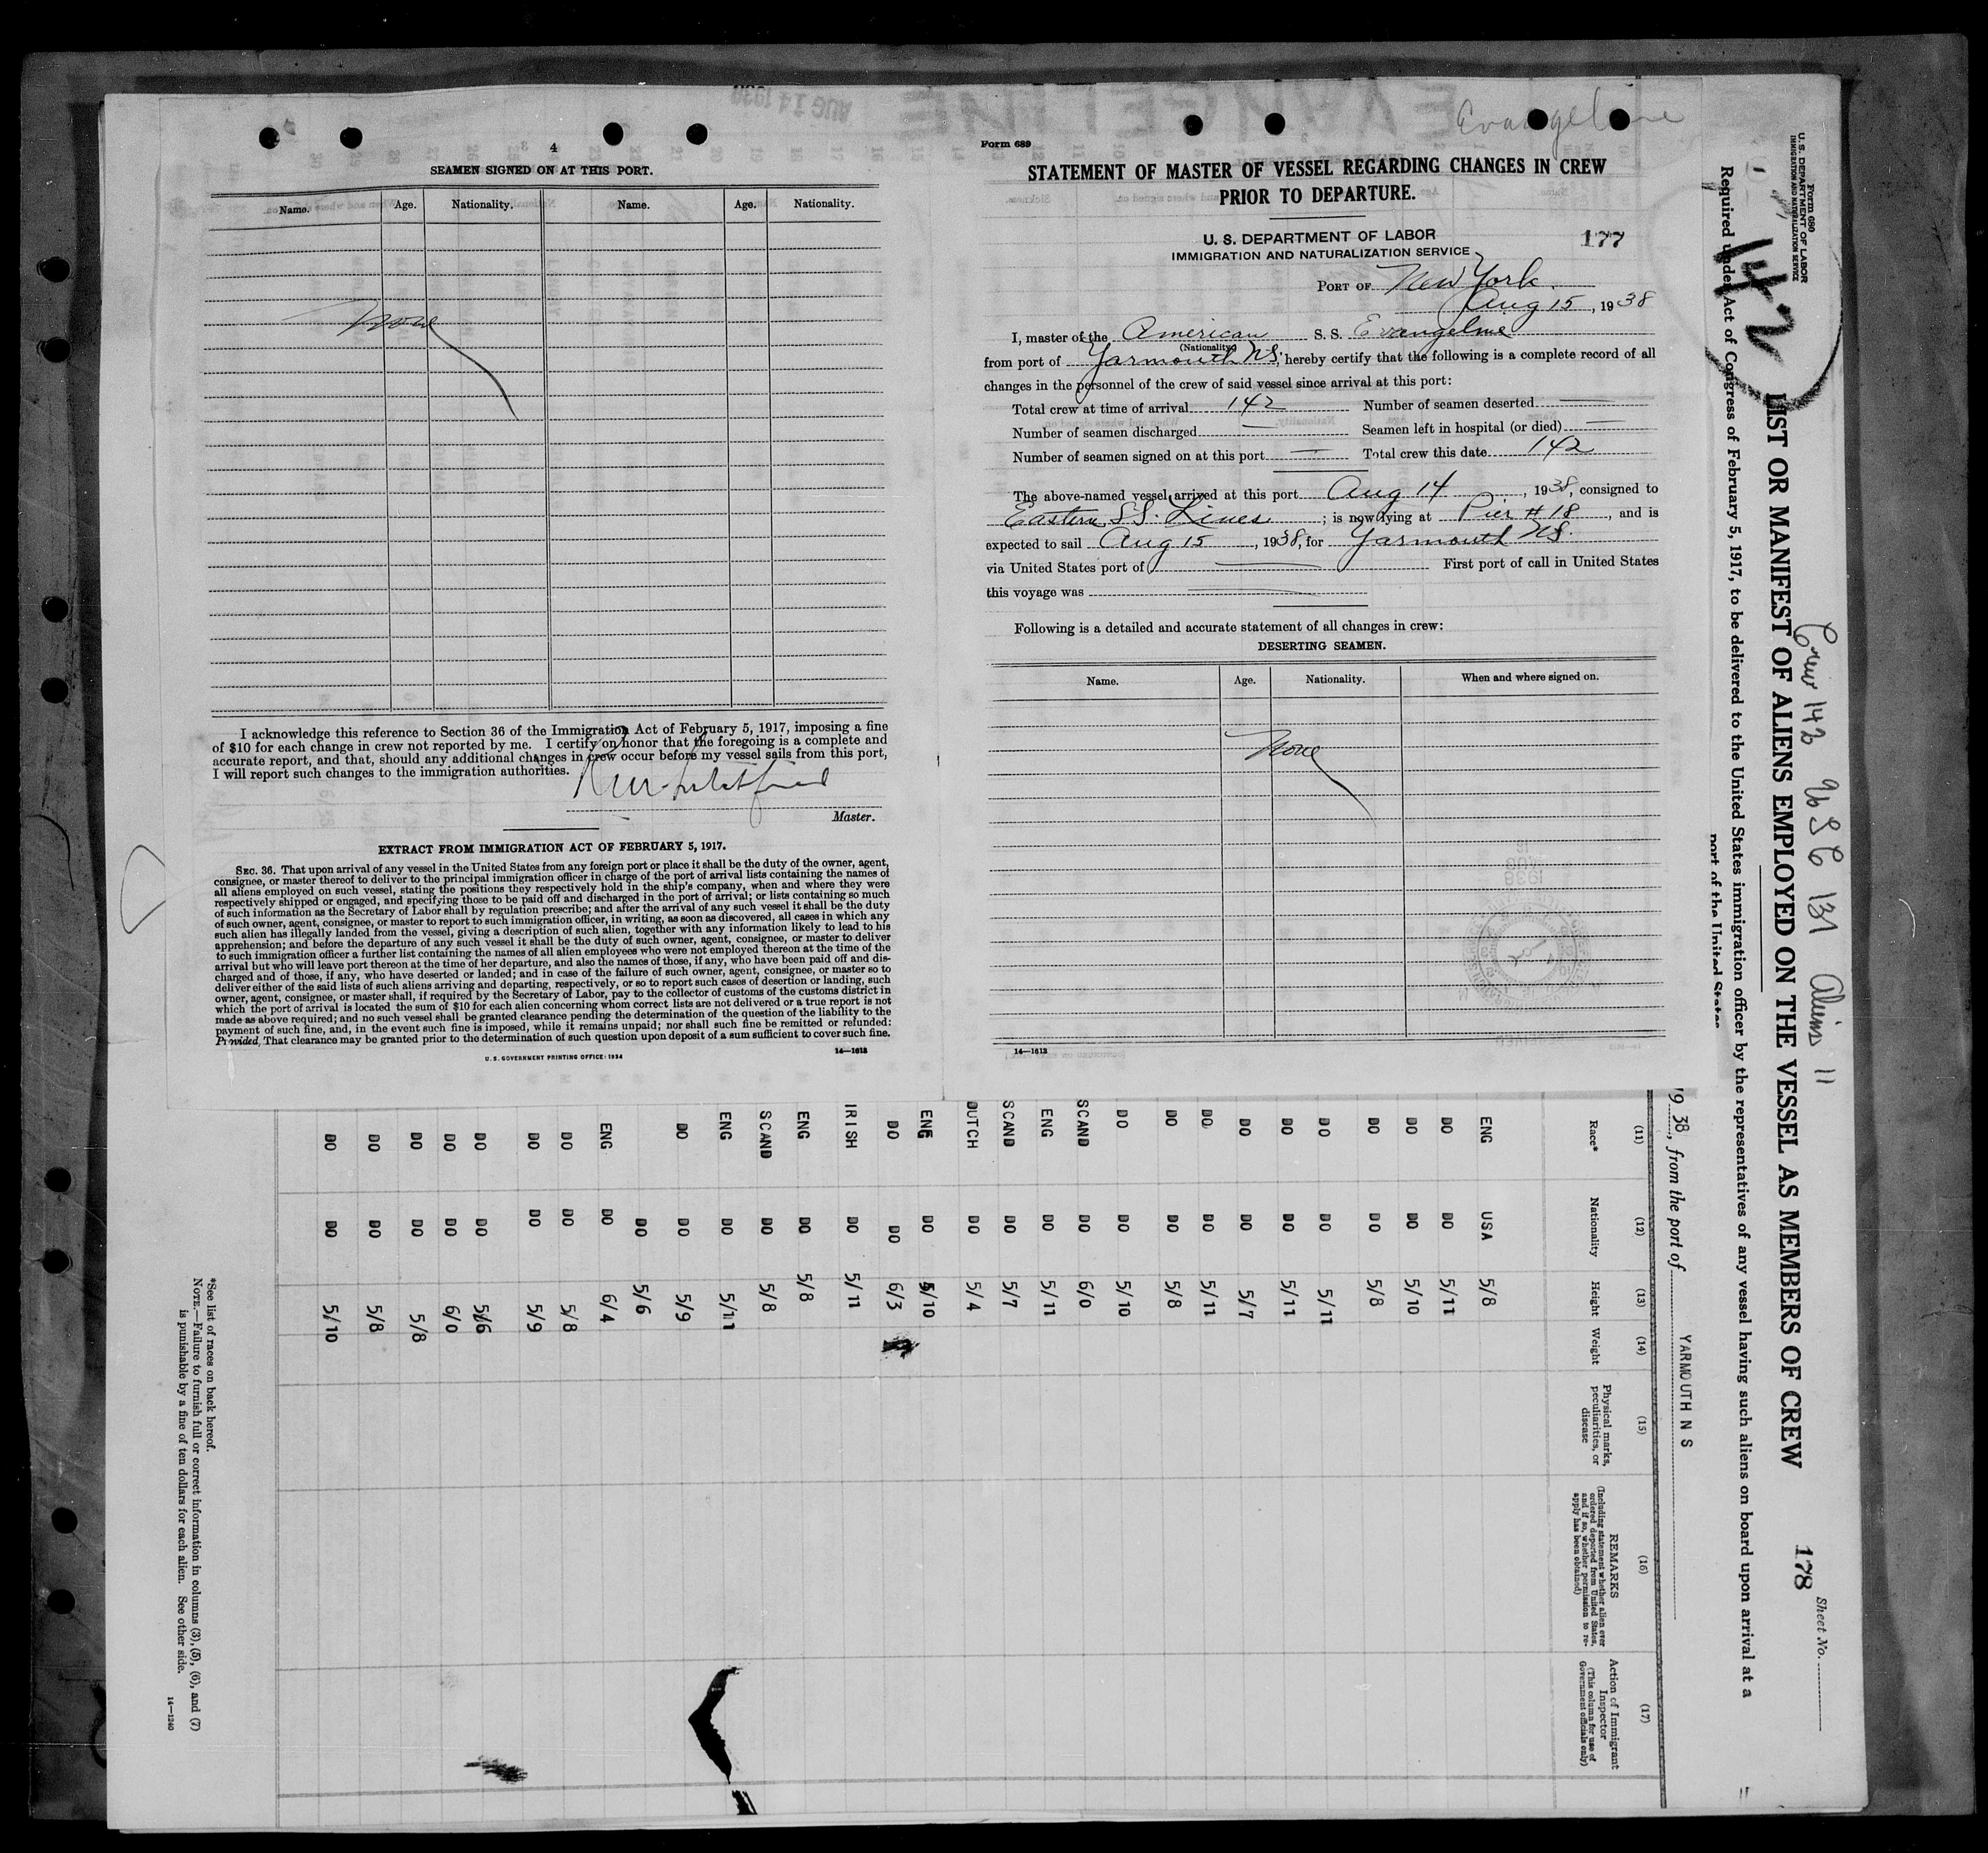 4
SEAMEN SIGNED ON AT THIS PORT.
Name. Age. Nationality. Name. Age. Nationality.
None
I acknowledge this reference to Section 36 of the Immigration Act of February 5, 1917, imposing a fine
of $10 for each change in crew not reported by me. I certify on honor that the foregoing is a complete and
accurate report, and that, should any additional changes in crew occur before my vessel sails from this port,
I will report such changes to the immigration authorities.
Master.
EXTRACT FROM IMMIGRATION ACT OF FEBRUARY 5, 1917.
SEC. 36. That upon arrival of any vessel in the United States from any foreign port or place it shall be the duty of the owner, agent,
consignee, or master thereof to deliver to the principal immigration officer in charge of the port of arrival lists containing the names of
all aliens employed on such vessel, stating the positions they respectively hold in the ship's company, when and where they were
respectively shipped or engaged, and specifying those to be paid off and discharged in the port of arrival; or lists containing so much
of such information as the Secretary of Labor shall by regulation prescribe; and after the arrival of any such vessel it shall be the duty
of such owner, agent, consignee, or master to report to such immigration officer, in writing, as soon as discovered, all cases in which any
such alien has illegally landed from the vessel, giving a description of such alien, together with any information likely to lead to his
apprehension; and before the departure of any such vessel it shall be the duty of such owner, agent, consignee, or master to deliver
to such immigration officer a further list containing the names of all alien employees who were not employed thereon at the time of the
arrival but who will leave port thereon at the time of her departure, and also the names of those, if any, who have been paid off and dis-
charged and of those, if any, who have deserted or landed; and in case of the failure of such owner, agent, consignee, or master so to
deliver either of the said lists of such aliens arriving and departing, respectively, or so to report such cases of desertion or landing, such
owner, agent, consignee, or master shall, if required by the Secretary of Labor, pay to the collector of customs of the customs district in
which the port of arrival is located the sum of $10 for each alien concerning whom correct lists are not delivered or a true report is not
made as above required; and no such vessel shall be granted clearance pending the determination of the question of the liability to the
payment of such fine, and, in the event such fine is imposed, while it remains unpaid; nor shall such fine be remitted or refunded:
Provided, That clearance may be granted prior to the determination of such question upon deposit of a sum sufficient to cover such fine.
U. S. GOVERNMENT PRINTING OFFICE: 1934 14—1613
Evangeline
Form 689
STATEMENT OF MASTER OF VESSEL REGARDING CHANGES IN CREW
PRIOR TO DEPARTURE.
U. S. DEPARTMENT OF LABOR
IMMIGRATION AND NATURALIZATION SERVICE
177
PORT OF New York.
Aug 15, 1938
I, master of the American S. S. Evangeline
(Nationality)
from port of Yarmouth NS, hereby certify that the following is a complete record of all
changes in the personnel of the crew of said vessel since arrival at this port:
Total crew at time of arrival 142 Number of seamen deserted —
Number of seamen discharged — Seamen left in hospital (or died) —
Number of seamen signed on at this port — Total crew this date 142
The above-named vessel arrived at this port Aug 14, 1938, consigned to
Eastern SS. Lines; is now lying at Pier # 18, and is
expected to sail Aug 15, 1938, for Yarmouth NS.
via United States port of — First port of call in United States
this voyage was —
Following is a detailed and accurate statement of all changes in crew:
DESERTING SEAMEN.
Name. Age. Nationality. When and where signed on.
None
14—1613
Form 680
U. S. DEPARTMENT OF LABOR
IMMIGRATION AND NATURALIZATION SERVICE
142
Crew 142 USC 131 Aliens 11
LIST OR MANIFEST OF ALIENS EMPLOYED ON THE VESSEL AS MEMBERS OF CREW
178
Sheet No.
Required under Act of Congress of February 5, 1917, to be delivered to the United States immigration officer by the representatives of any vessel having such aliens on board upon arrival at a
port of the United States
19 38, from the port of YARMOUTH N S
(11) (12) (13) (14) (15) (16) (17)
Race* Nationality Height Weight Physical marks, peculiarities, or disease REMARKS (Including statement whether alien ever ordered deported from United States, and if so, whether permission to re-apply has been obtained) Action of Immigrant Inspector (This column for use of Government officials only)
ENG USA 5/8
DO DO 5/11
DO DO 5/10
DO DO 5/8
DO DO 5/11
DO DO 5/11
DO DO 5/7
DO DO 5/11
DO DO 5/8
DO DO 5/10
SCAND DO 6/0
ENG DO 5/11
SCAND DO 5/7
DUTCH DO 5/4
ENG DO 5/10
DO DO 6/3
IRISH DO 5/11
ENG DO 5/8
SCAND DO 5/8
ENG DO 5/11
DO DO 5/9
DO 5/6
ENG DO 6/4
DO DO 5/8
DO DO 5/9
DO DO 5/6
DO DO 6/0
DO DO 5/8
DO DO 5/8
DO DO 5/10
*See list of races on back hereof.
NOTE.—Failure to furnish full or correct information in columns (3), (5), (6), and (7)
is punishable by a fine of ten dollars for each alien. See other side.
14—1240